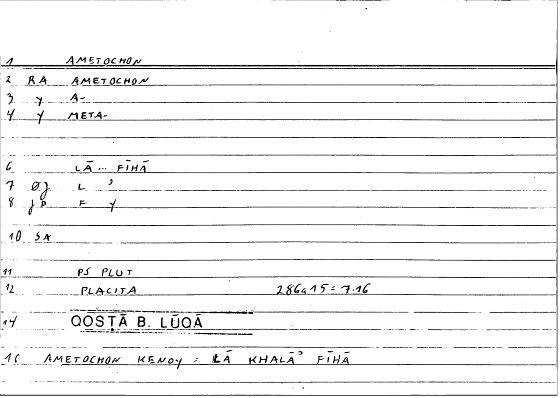 1 AMETOCHON
2 RA AMETOCHON
3 y A-
4 y META-
6 LĀ... FĪHĀ
7 Øj L ʾ
8 jp F y
10 SA
11 PS PLUT
12 PLACITA 286a15 = 7.16
14 QOSṬĀ B. LŪQĀ
16 AMETOCHON KENOY : LĀ KHALĀʾ FĪHĀ